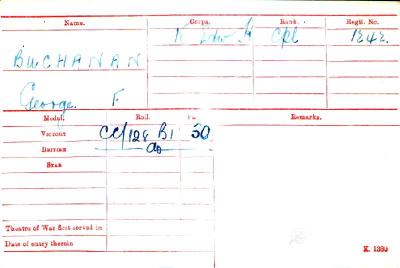 Name. Corps. Rank. Regtl. No.
BUCHANAN Cpl 1242.
George. F.
Medal. Roll. Remarks.
Victory CC/128 B1 30
British do
Star
Theatre of War first served in
Date of entry therein
K. 1380